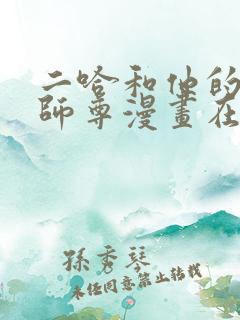 二哈和他的
師尊漫畫在
孫秀琴
未经同意禁止转载